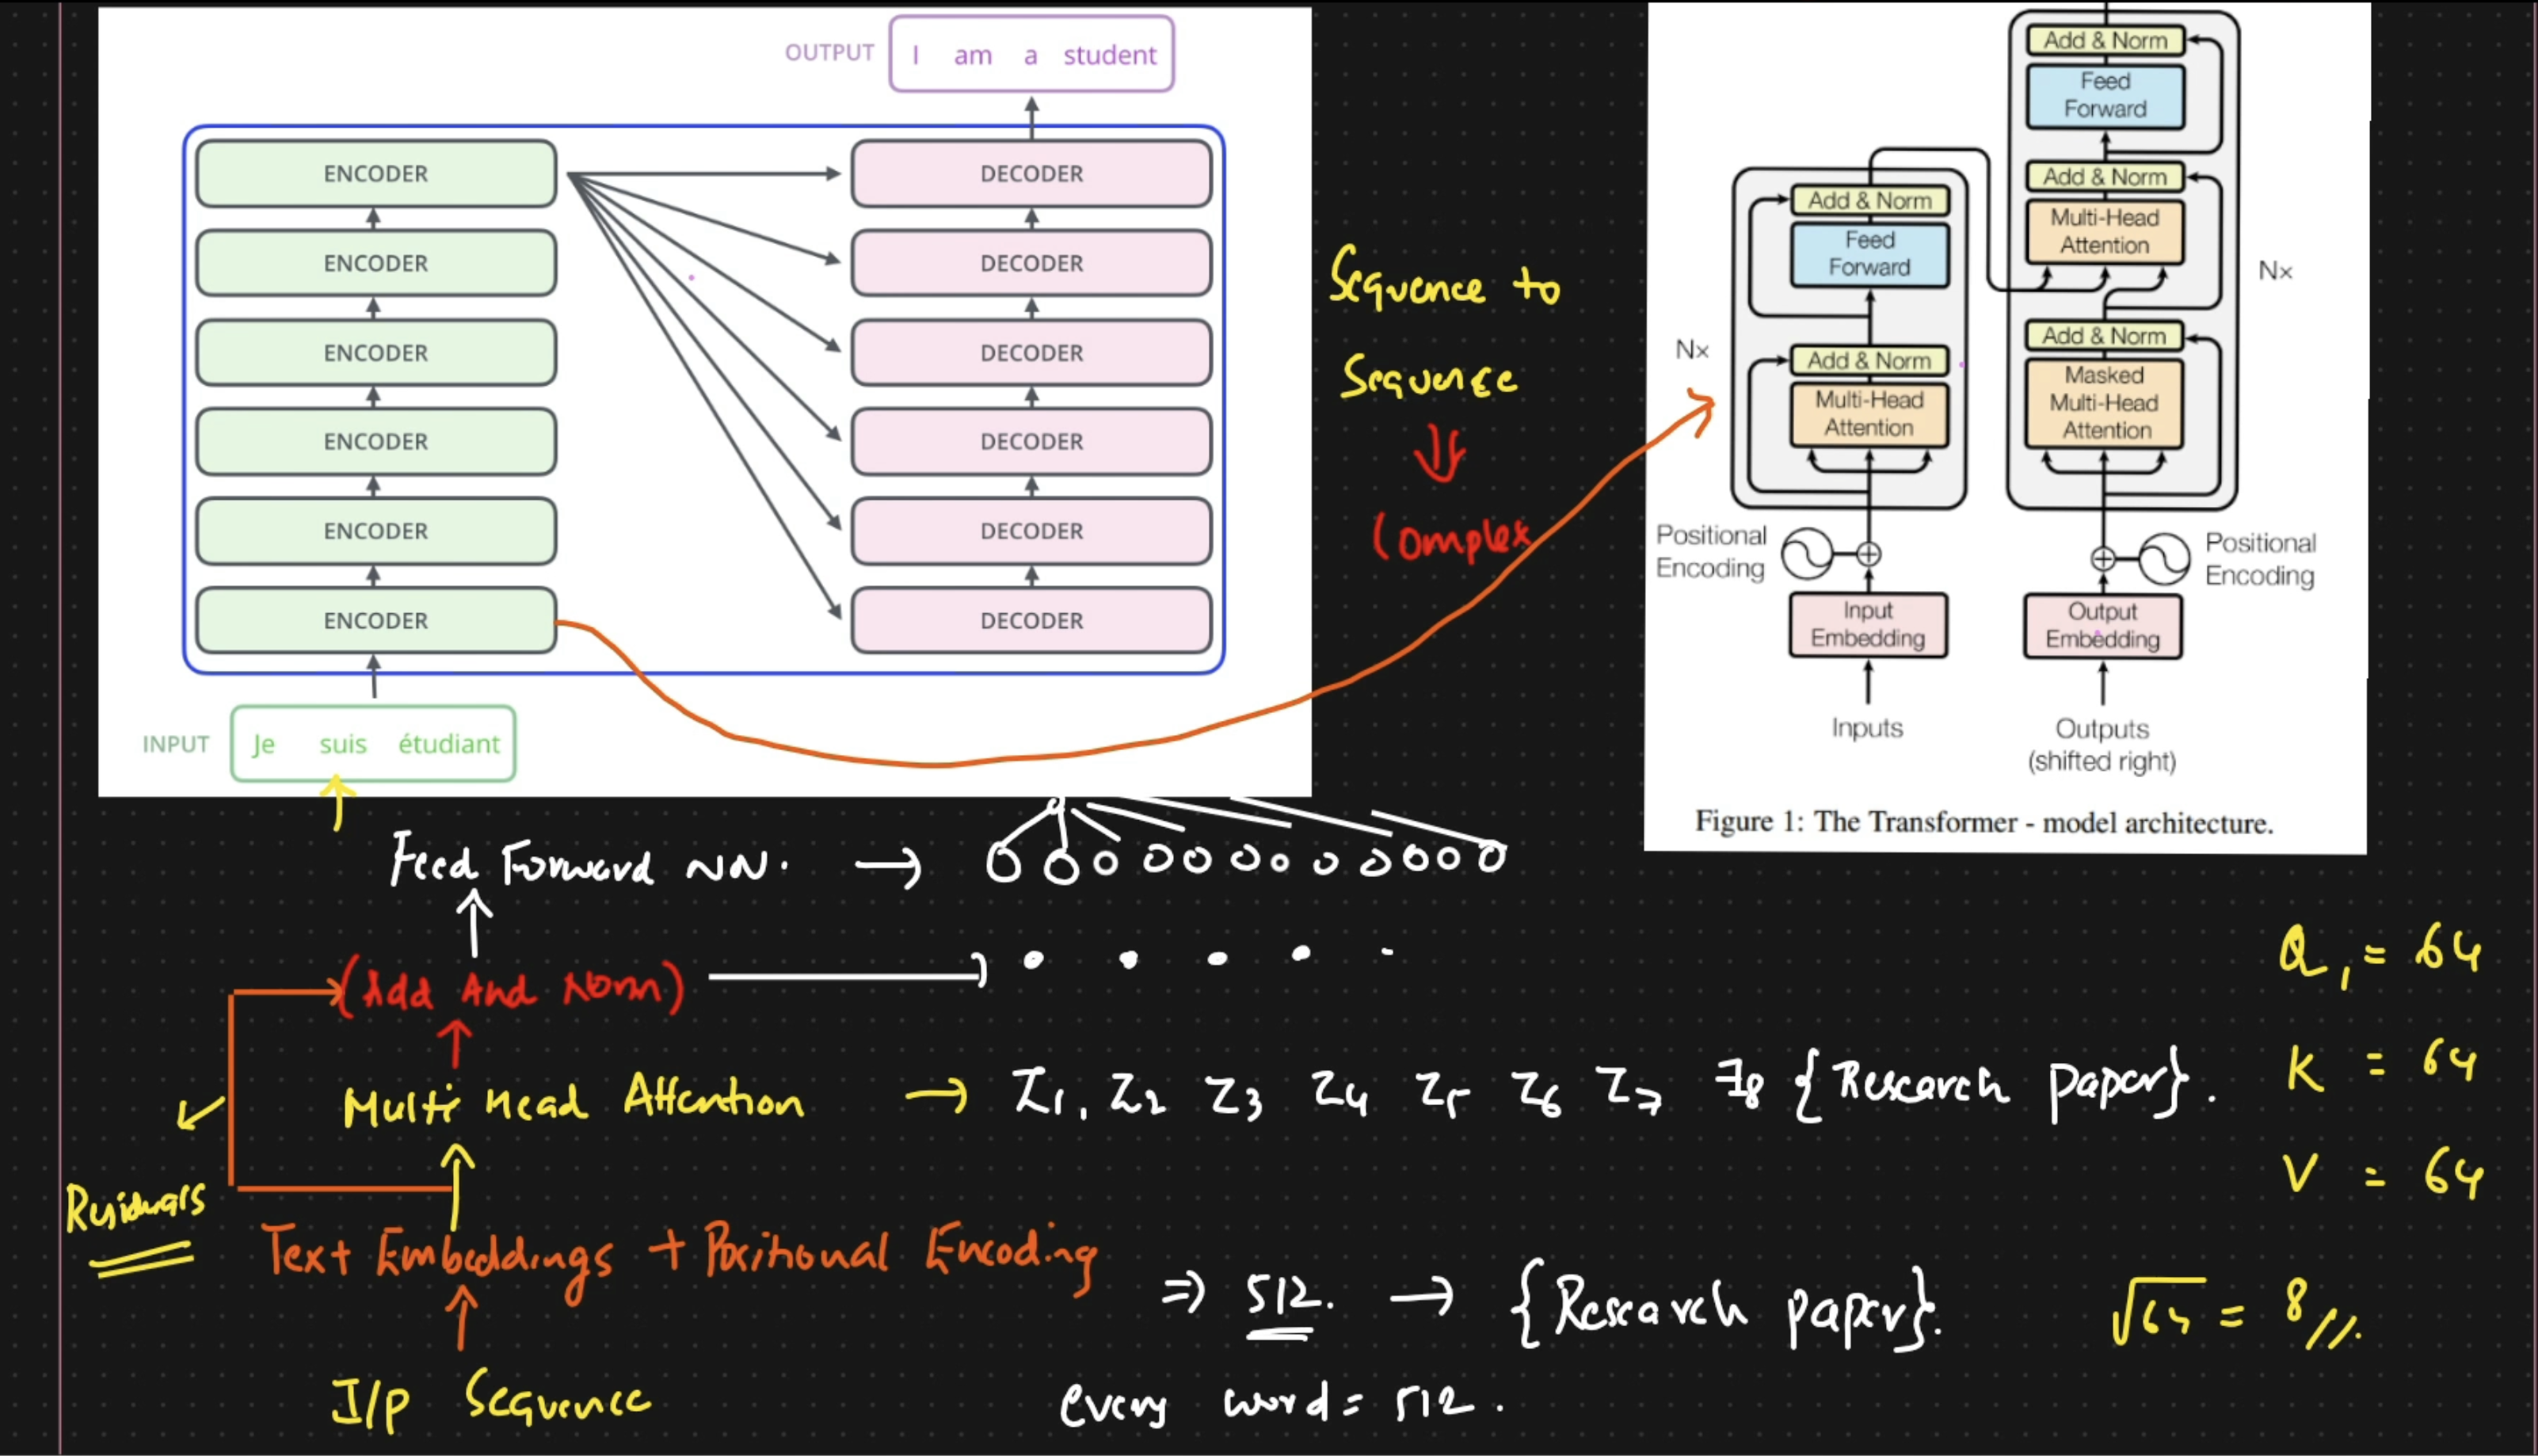 OUTPUT I am a student
ENCODER
ENCODER
ENCODER
ENCODER
ENCODER
ENCODER
DECODER
DECODER
DECODER
DECODER
DECODER
DECODER
INPUT Je suis étudiant
Sequence to
Sequence
Complex
Add & Norm
Feed
Forward
Add & Norm
Multi-Head
Attention
Nx
Add & Norm
Masked
Multi-Head
Attention
Add & Norm
Feed
Forward
Nx
Add & Norm
Multi-Head
Attention
Positional
Encoding
Positional
Encoding
Input
Embedding
Output
Embedding
Inputs
Outputs
(shifted right)
Figure 1: The Transformer - model architecture.
Feed Forward NN. →
(Add And Norm)
Multi Head Attention → Z1, Z2 Z3 Z4 Z5 Z6 Z7 Z8 {Research paper}.
Residuals
Text Embeddings + Positional Encoding
⇒ 512. → {Research paper}.
I/p Sequence
every word = 512.
Q1 = 64
K = 64
V = 64
√64 = 8//.